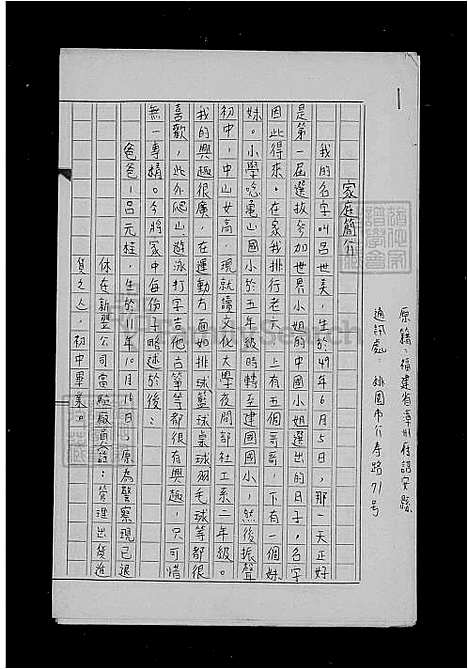 原籍：福建省漳州府詔安縣
通訊處：桃園市仁壽路71号
家庭簡介
我的名字叫呂世美，生於49年6月5日，那一天正好
是第一屆選拔参加世界小姐的中國小姐選出的日子，名字
因此得來。在家我排行老六，上有五個哥哥，下有一個妹
妹。小學唸龜山國小於五年級時轉至建國國小，然後振聲
初中，中山女高，現就讀文化大學夜間部社工系二年級。
我的興趣很廣，在運動方面如排球籃球桌球羽毛球等都很
喜歡，此外爬山、游泳打字吉他古箏等都很有興趣，只可惜
無一專精。今將家中每份子略述於後：
爸爸，呂元柱，生於11年10月16日，原為警察現已退
休在新翌公司當驗廠員：管理出貨進
貨之人，初中畢業。